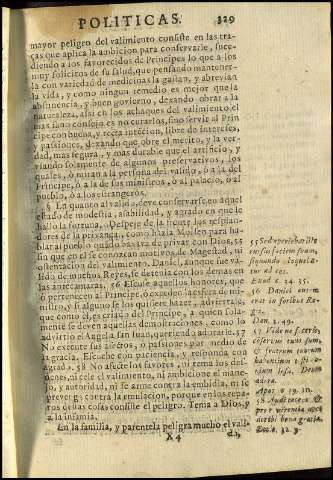 POLITICAS. 329
mayor peligro del valimiento consiste en las tra-
ças que aplica la ambicion para conservarle, suce-
diendo a los favorecidos de Principes lo que a los
muy solicitos de su salud, que pensando mantener-
la con variedad de medicinas la gastan, y abrevian
la vida, y como ningun remedio es mejor que la
abstinencia, y buen govierno, dexando obrar a la
naturaleza, assi en los achaques del valimiento el
mas sano consejo es no curarlos, sino servir al Prin
cipe con buena, y recta intencion, libre de intereses,
y passiones, dexando que obre el merito, y la ver-
dad, mas segura, y mas durable que el artificio, y
usando solamente de algunos preservativos, los
quales, ò miran a la persona del valido, ò a la del
Principe, ò a la de sus ministros, ò al palacio, ò al
pueblo, ò a los estrangeros.
§ En quanto al valido, deve conservarse en aquel
estado de modestia, afabilidad, y agrado en que le
hallò la fortuna. Despeje de la frente los resplan-
dores de la privança, como hazia Moisen para ha-
blar al pueblo quando baxava de privar con Dios, 55
sin que en él se conozcan motivos de Magestad, y
ostentacion del valimiento. Daniel, aunque fue va-
lido de muchos Reyes, se detenia con los demas en
las antecamaras. 56 Escuse aquellos honores, que
ò pertenecen al Principe, ò exceden la esfera de mi-
nistro, y si alguno se los quisiere hazer, adviertale,
que como èl, es criado del Principe, a quien sola-
mente se deven aquellas demostraciones, como lo
advirtiò el Angel a San Iuan, queriendo adorarle. 57
No execute sus afectos, ò passiones por medio de
la gracia. Escuche con paciencia, y responda con
agrado. 58 No afecte los favores, ni tema los desde-
nes, ni cele el valimiento, ni ambicione el mane-
jo, y autoridad, ni se arme contra la embidia, ni se
prevenga contra la emulacion, porque en los repa-
ros destas cosas consiste el peligro. Tema a Dios, y
a la infamia.
En la familia, y parentela peligra mucho el vali-
X 4 do,
55 Sed operiebat ille
rursus faciem suam,
siquando loqueba-
tur ad eos.
Exod. c. 34. 35.
56 Daniel autem
erat in foribus Re-
gis.
Dan. 2. 49.
57 Vide ne feceris,
conservus tuus sum,
& fratrum tuorum
habentium testimo-
nium Iesu. Deum
adora.
Apoc. c. 19. 10.
58 Audi tacens, &
pro reverentia acce-
det tibi bona gratia.
Eccle. 32. 9.